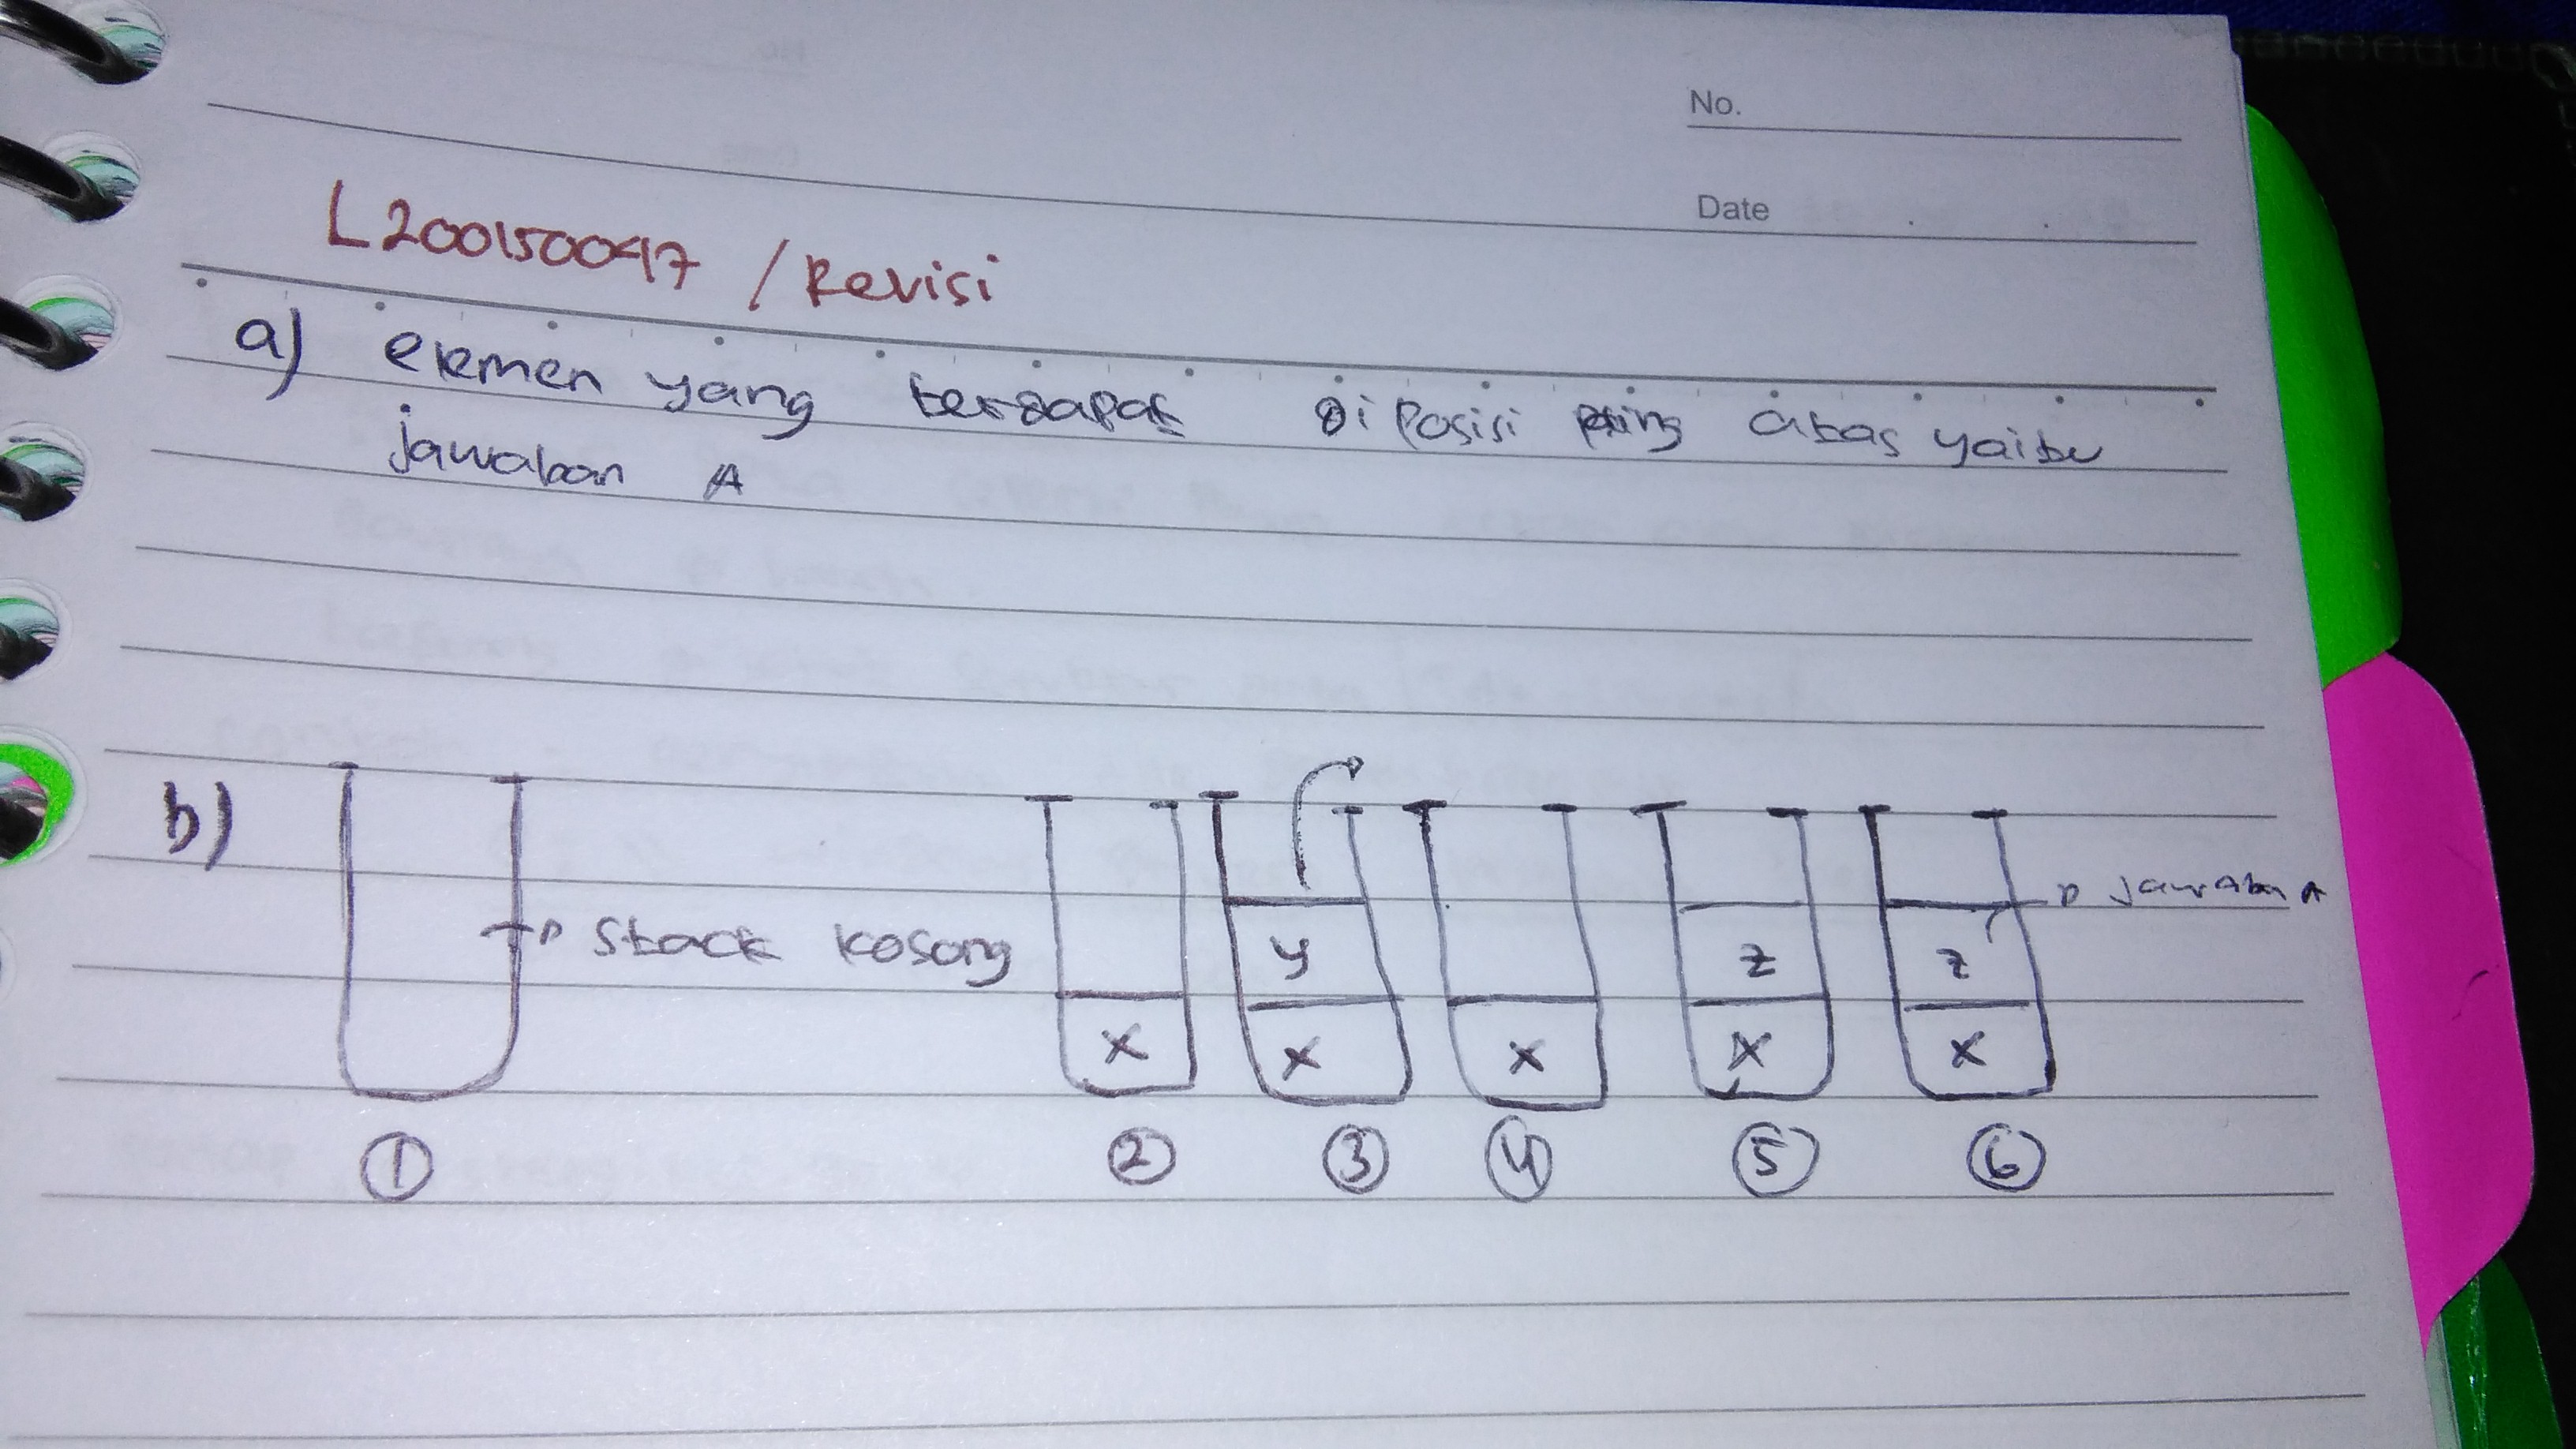 No.
Date
L200150047 / Revisi
a) elemen yang terdapat di posisi paling atas yaitu
jawaban A
b) stack kosong
jawaban A
y z z
x x x x x
1 2 3 4 5 6